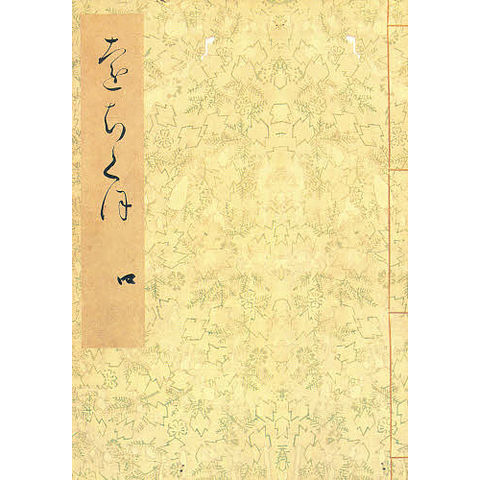 をちくほ 四